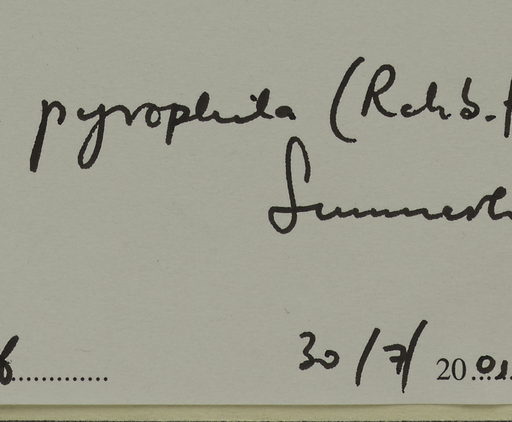 pyrophila (Rchb. f
Summerh
30/7/ 2001